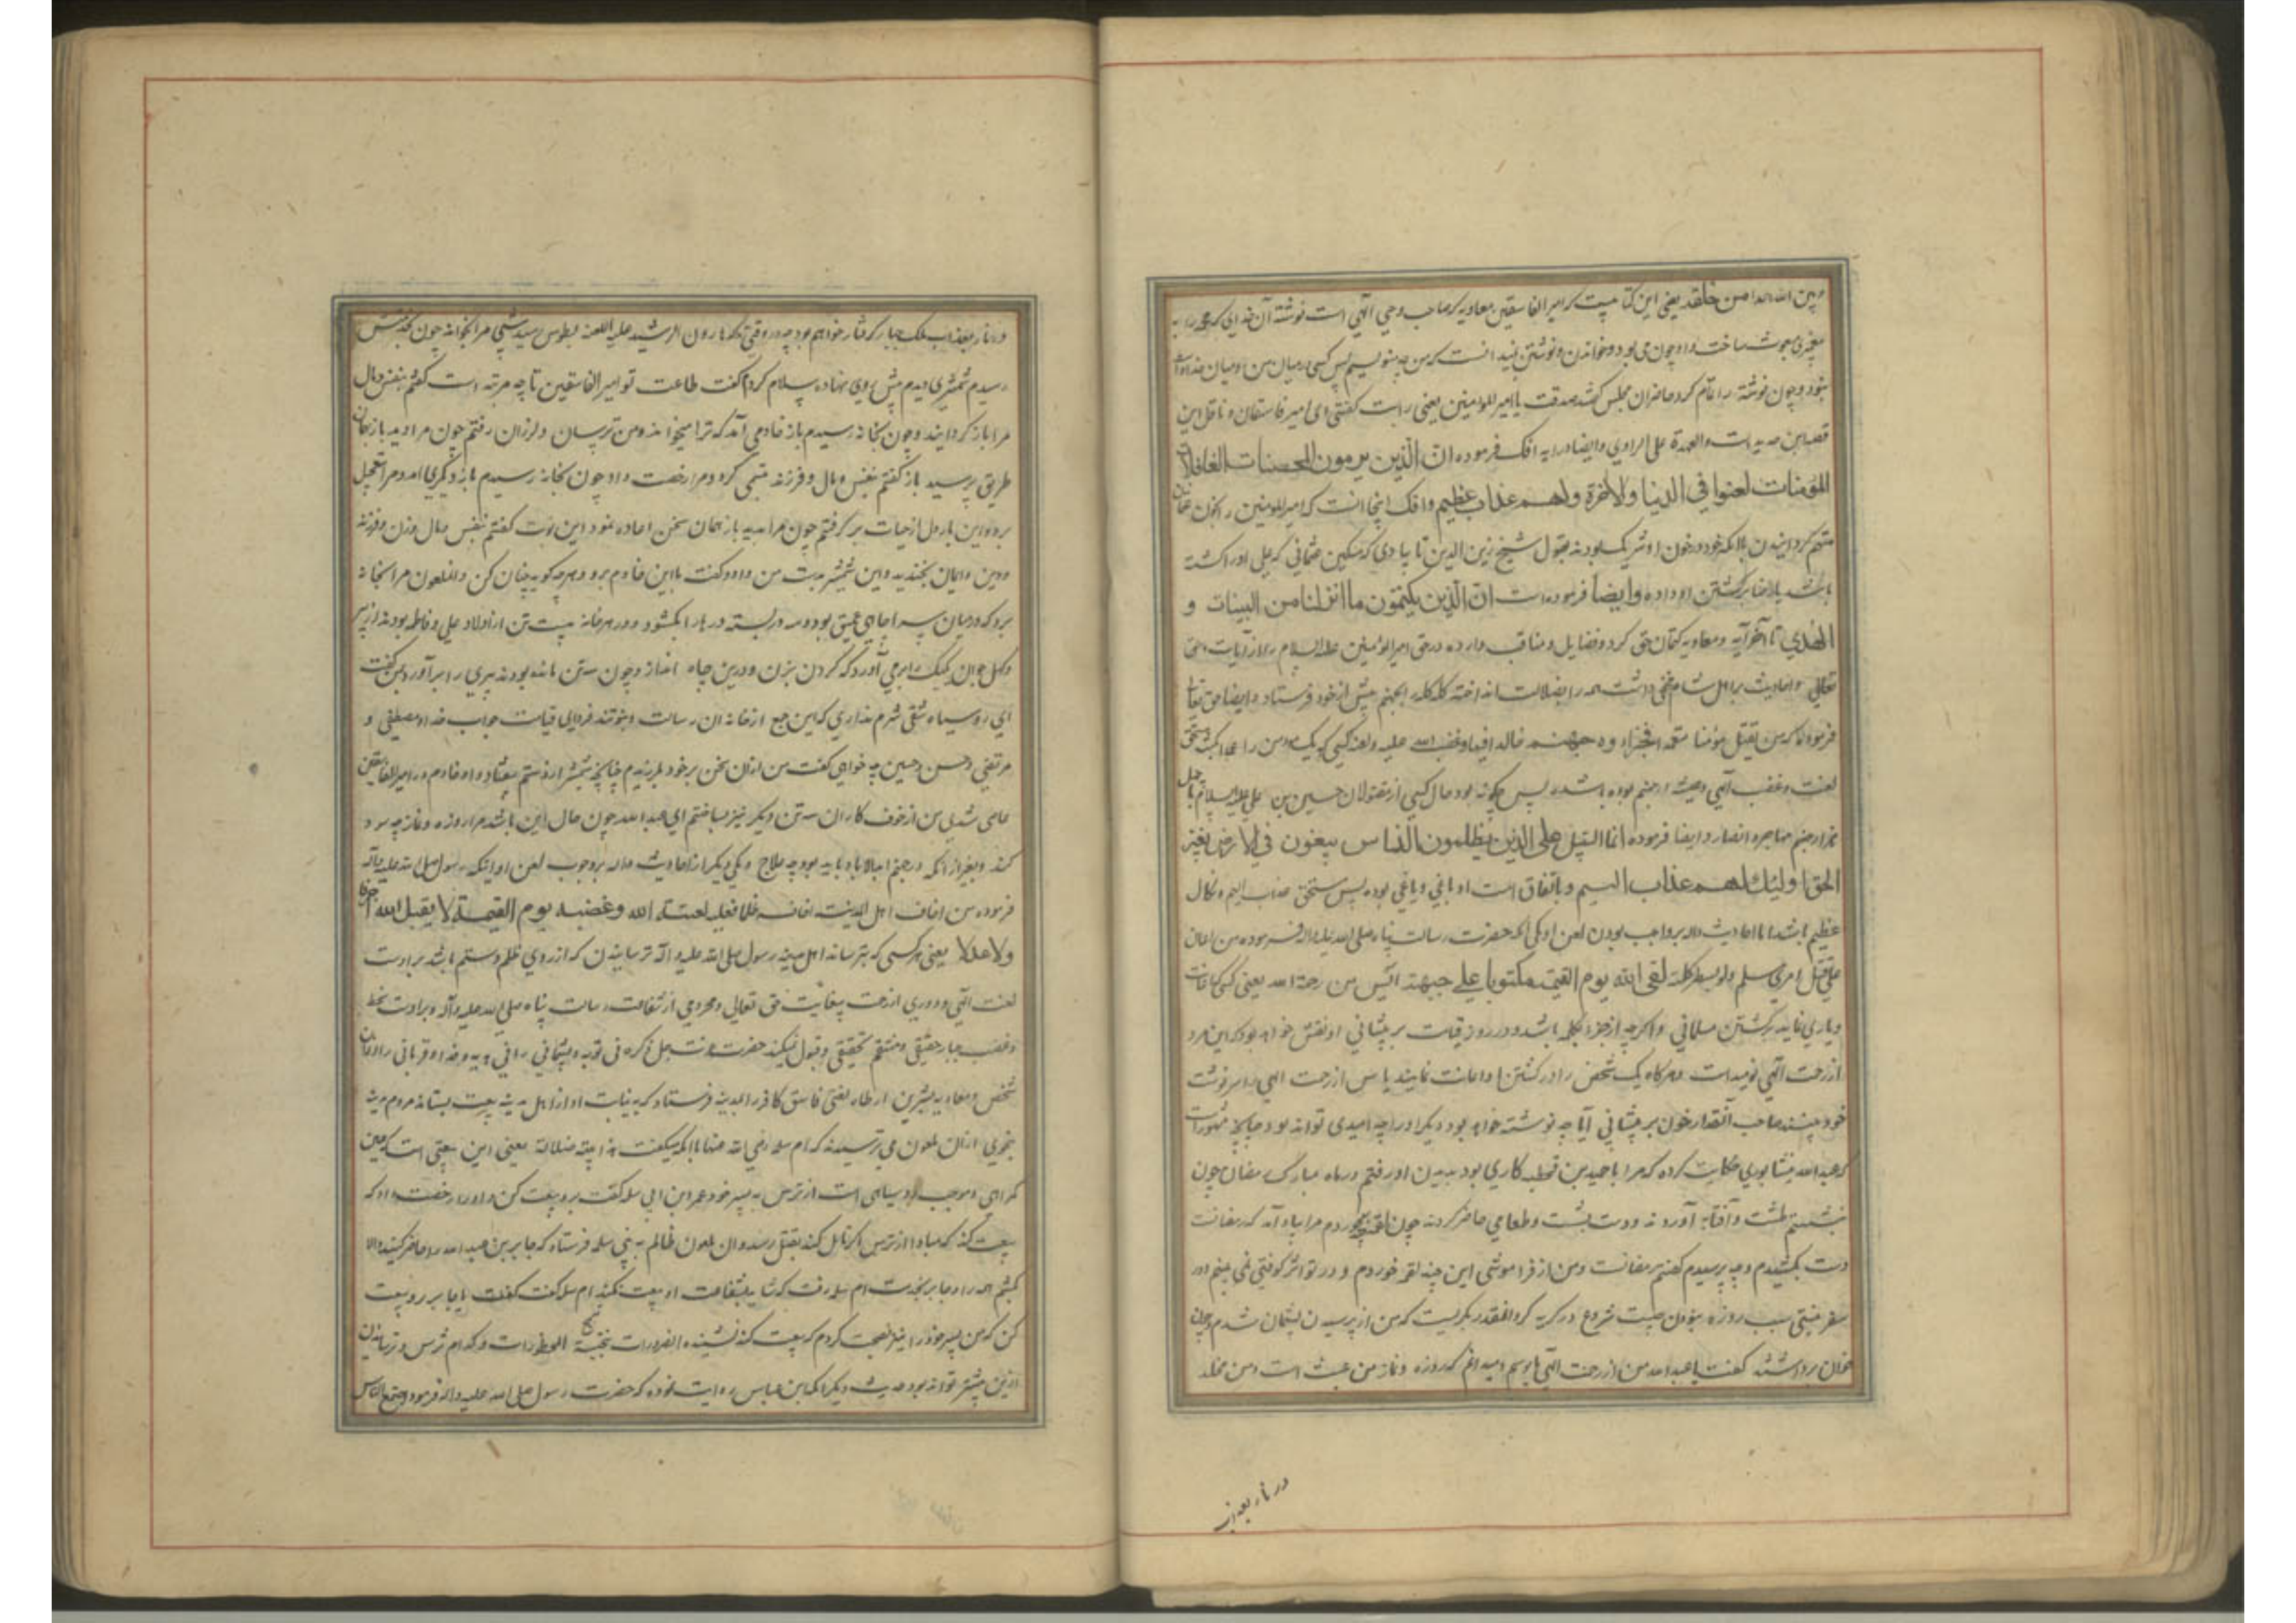 وبین الله احدا من خلقه یعنی این کتابیست که امیر الفاسقین معاویه که صاحب وحی الهی است نوشته آن خدایی که محمد را به
مبعوث ساخت و او چون می بود و خواندن و نوشتن که من چه بنویسم پس کسی در میان من و میان خدا
بنود و چون نوشته را تمام کرد حاضران مجلس گفتند صدقت یا امیر المومنین یعنی راست گفتی ای امیر فاسقان و ناقل این
قصه ابن حدیدست والعهدة علی الراوی و ایضا در آیه افک فرموده ان الذین یرمون المحصنات الغافلات
المؤمنات لعنوا فی الدنیا والاخرة ولهم عذاب عظیم وافک اینجا انست که امیر المومنین را بخون عثمان
متهم گردانیدن با آنکه خود در خون او شریک بودند بقول شیخ زین الدین تایبادی که مسکین عثمانی که علی او را کشته
باشد یا رضا بر کشتن او داده وایضا فرموده است ان الذین یکتمون ما انزلنا من البینات و
الهدی تا آخر آیه و معاویه کتمان حق کرد و فضایل و مناقب وارده در حق امیر المومنین علیه السلام را از آیات حق
تعالی و احادیث بر اهل شام مخفی داشت همه را بضلالت انداخته گله گله را بجهنم پیش از خود فرستاد و ایضا حق تعالی
فرموده که من یقتل مؤمنا متعمدا فجزاؤه جهنم خالدا فیها وغضب الله علیه ولعنه کسی که یک مومن را عمدا بکشد مستحق
لعنت و غضب الهی و همیشه در جهنم بوده باشد پس چگونه بود حال کسی از مقتولان حسین بن علی علیه السلام
هزار مهاجر و انصار و ایضا فرموده انما السبیل علی الذین یظلمون الناس یبغون فی الارض بغیر
الحق اولئک لهم عذاب الیم و باتفاق است او باغی و یاغی بوده پس مستحق عذاب الیم و نکال
عظیم باشد اما احادیث داله بر واجب بودن لعن او یکی آنکه حضرت رسالت پناه صلی الله علیه واله فرموده من اعان
علی قتل امرئ مسلم ولو بشطر کلمة لقی الله یوم القیمة مکتوبا علی جبهته آیس من رحمة الله یعنی کسی که اعانت
و یاری نماید بر کشتن مسلمانی و اگرچه از جزء کلمه باشد در روز قیامت بر پیشانی او نقش خواهد بود که این مرد
از رحمت الهی نومیدست و هرگاه یک شخص را در کشتن او اعانت نمایند یاس از رحمت الهی را سرنوشت
خود بینند صاحب آنقدر خون بر پیشانی آیا چه نوشته خواهد بود و دیگر او را چه امیدی تواند بود چنانچه مشهورست
که عبدالله نیشابوری حکایت کرده که مرا با حمید بن قحطبه کاری بود بدیدن او رفتم در ماه مبارک رمضان چون
نشستم طشت و آفتابه آوردند و دست بشست و طعامی حاضر کردند چون لقمه بخوردم مرا یاد آمد که رمضانست
دست بکشیدم وجه پرسیدم گفتم رمضانست و من از فراموشی این چند لقمه خوردم و در تو اثر کوفتی نمی بینم و در
سفر نیستی سبب روزه نبودن چیست شروع در گریه کرد آنقدر بگریست که من از پرسیدن پشیمان شدم و چون
خوان برداشتند گفت یا عبدالله من از رحمت الهی مایوسم و میدانم که روزه و نماز من عبث است و من مخلد
در نار بعذاب
در نار بعذاب ملک جبار گرفتار خواهم بود چه در وقتی که هارون الرشید علیه اللعنه بطوس رسید شبی مرا بخواند چون بخدمتش
رسیدم شمشیری دیدم پیش وی نهاده سلام کردم گفت طاعت تو امیر الفاسقین تا چه مرتبه است گفتم بنفس و مال
مرا بازگردانید و چون بخانه رسیدم باز خادمی آمد که ترا میخواند و من ترسان و لرزان رفتم چون مرا دید باز بهمان
طریق پرسید باز گفتم بنفس و مال و فرزند تبسمی کرد و مرا رخصت داد چون بخانه رسیدم باز دیگری آمد و مرا تعجیل
برد و این بار دل از حیات برگرفتم چون مرا بدید باز همان سخن اعاده نمود این نوبت گفتم بنفس و مال و زن و فرزند
و دین و ایمان بخندید و این شمشیر بدست من داد و گفت با این خادم برو و هر چه گوید چنان کن و آن ملعون مرا بخانه
برد که در میان سرا چاهی عمیق بود و سه در بسته در هر را بگشود و در هر خانه بیست تن از اولاد علی و فاطمه بودند از پیر
و کهل و جوان یکیک را بر می آورد که گردن بزن و در این چاه انداز و چون سه تن مانده بودند پیری را برآورد بمن گفت
ای روسیاه شقی شرم نداری که این جمع از خانه ان رسالت و نبوتند فردای قیامت جواب خدا و مصطفی و
مرتضی و حسن و حسین چه خواهی گفت من از ان سخن بر خود بلرزیدم چنانچه شمشیر از دستم بیفتاد و او خادم در امیر الفاسقین
عاصی شدی من از خوف کار ان سه تن دیگر نیز بساختم ای عبدالله چون حال این باشد مرا روزه و نماز چه سود
کند و بغیر از آنکه در جهنم ابدالاباد باید بود چه علاج و یکی دیگر از احادیث داله بر وجوب لعن او اینکه رسول صلی الله علیه وآله
فرموده من اخاف اهل المدینه اخافه ظلما فعلیه لعنة الله وغضبه یوم القیمة لا یقبل الله صرفا
ولا عدلا یعنی هر کسی که بترساند اهل مدینه رسول صلی الله علیه وآله ترسانیدن که از روی ظلم و ستم باشد بر اوست
لعنت الهی و دوری از رحمت بیغایت حق تعالی و محرومی از شفاعت رسالت پناه صلی الله علیه وآله و بر اوست سخط
و غضب جبار حقیقی و منتقم تحقیقی و قبول نمیکند حضرت عزت جل ذکره نی توبه و پشیمانی را نی و فدا و قربانی را از ان
شخص و معاویه بشر بن ارطاة لعنتی فاسق کافر را بمدینه فرستاد که به نیابت او از اهل مدینه بیعت بستاند مردم مدینه
بنحوی از ان ملعون می ترسیدند که ام سلمه رضی الله عنها با آنکه میگفت هذا بیعة ضلالة یعنی این بیعتی است که عین
گمراهی و موجب روسیاهی است از ترس به پسر خود عمر ابن ابی سلمه گفت برو بیعت کن و او را رخصت داد که
بیعت کند که مبادا از ترس اگر تامل کند بقتل رسد و ان ملعون ظالم به بنی سلمه فرستاد که جابر بن عبدالله را حاضر کنید والا
بکشم همه را و جابر بخدمت ام سلمه رفت که شاید بشفاعت او بیعت نکند ام سلمه گفت یا جابر برو بیعت
کن که من پسر خود را نیز نصیحت کردم که بیعت کند نشنیده الضرورات تبیح المحظورات و کدام ترس و ترسانیدن
ازین بیشتر تواند بود حدیث دیگر آنکه ابن عباس روایت نموده که حضرت رسول صلی الله علیه واله فرمود